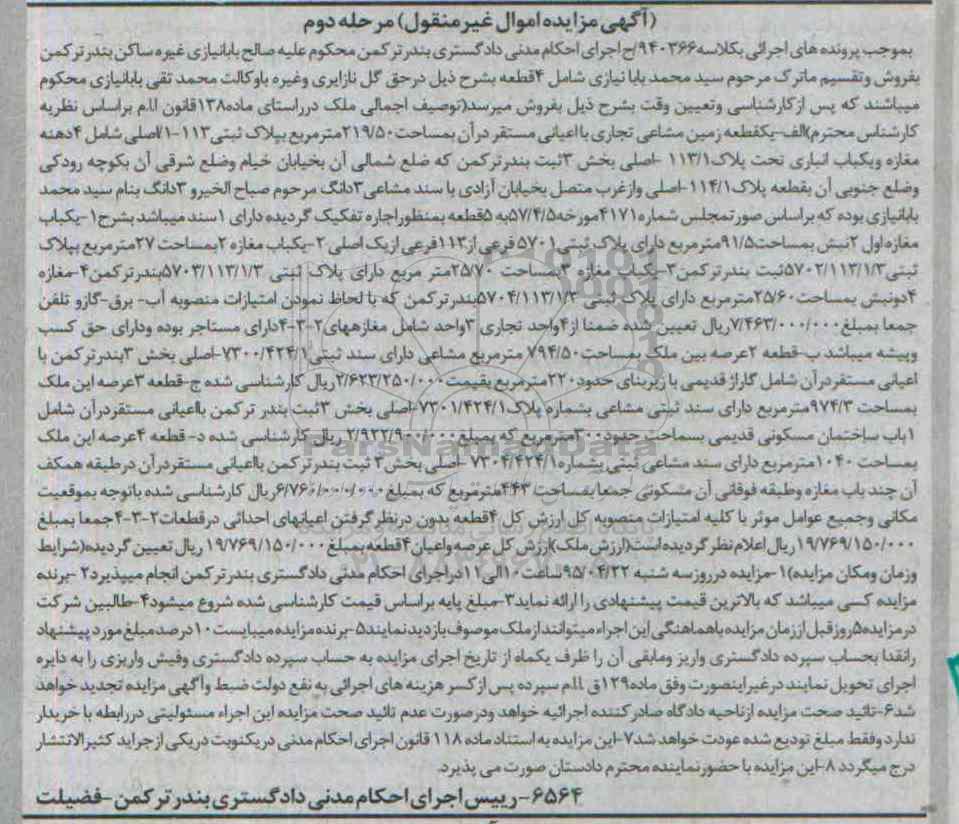 (آگهی مزایده اموال غیر منقول) مرحله دوم
بموجب پرونده های اجرائی بکلاسه ۹۴۰۳۶۶/ح اجرای احکام مدنی دادگستری بندر ترکمن محکوم علیه صالح بابانیازی غیره ساکن بندر ترکمن
بفروش وتقسیم ماترک مرحوم سید محمد بابا نیازی شامل ۴قطعه بشرح ذیل درحق گل نازایری وغیره باوکالت محمد تقی بابانیازی محکوم
میباشند که پس ازکارشناسی وتعیین وقت بشرح ذیل بفروش میرسد(توصیف اجمالی ملک درراستای ماده۱۳۸قانون ا.ا.م براساس نظریه
کارشناس محترم)الف-یکقطعه زمین مشاعی تجاری بااعیانی مستقر درآن بمساحت۲۱۹/۵۰مترمربع بپلاک ثبتی۱۱۳-۱/اصلی شامل ۴دهنه
مغازه ویکباب انباری تحت پلاک۱۱۳/۱ -اصلی بخش ۳ثبت بندرترکمن که ضلع شمالی آن بخیابان خیام وضلع شرقی آن بکوچه رودکی
وضلع جنوبی آن بقطعه پلاک۱۱۴/۱-اصلی وازغرب متصل بخیابان آزادی با سند مشاعی۳دانگ مرحوم صباح الخیرو ۳دانگ بنام سید محمد
بابانیازی بوده که براساس صورتمجلس شماره ۴۱۷۱مورخه۵۷/۴/۵به ۵قطعه بمنظوراجاره تفکیک گردیده دارای ۱سند میباشد بشرح۱-یکباب
مغازه اول ۲نبش بمساحت۹۱/۵مترمربع دارای پلاک ثبتی۵۷۰۱ فرعی از۱۱۳فرعی ازیک اصلی ۲-یکباب مغازه ۲بمساحت ۲۷مترمربع بپلاک
ثبتی۵۷۰۲/۱۱۳/۱/۳ثبت بندرترکمن۳-یکباب مغازه ۳بمساحت ۲۵/۷۰متر مربع دارای پلاک ثبتی ۵۷۰۳/۱۱۳/۱/۳بندرترکمن۴-مغازه
۴دونبش بمساحت۲۵/۶۰مترمربع دارای پلاک ثبتی ۵۷۰۴/۱۱۳/۱/۳بندرترکمن که با لحاظ نمودن امتیازات منصوبه آب- برق-گازو تلفن
جمعا بمبلغ۷/۴۶۳/۰۰۰/۰۰۰ریال تعیین شده ضمنا از۴واحد تجاری ۳واحد شامل مغازههای۲-۳-۴دارای مستاجر بوده ودارای حق کسب
وپیشه میباشد ب-قطعه ۲عرصه بین ملک بمساحت۷۹۴/۵۰ مترمربع مشاعی دارای سند ثبتی۷۳۰۰/۴۲۴/۱-اصلی بخش ۳بندرترکمن با
اعیانی مستقردرآن شامل گاراژ قدیمی با زیربنای حدود۲۲۰مترمربع بقیمت۲/۶۲۳/۲۵۰/۰۰۰ریال کارشناسی شده ج-قطعه ۳عرصه این ملک
بمساحت ۹۷۴/۳مترمربع دارای سند ثبتی مشاعی بشماره پلاک۷۳۰۱/۴۲۴/۱-اصلی بخش ۳ثبت بندر ترکمن بااعیانی مستقردرآن شامل
۱باب ساختمان مسکونی قدیمی بمساحت حدود۳۰۰مترمربع که بمبلغ۲/۹۲۲/۹۰۰/۰۰۰ ریال کارشناسی شده د- قطعه ۴عرصه این ملک
بمساحت ۱۰۴۰مترمربع دارای سند مشاعی ثبتی بشماره۷۳۰۴/۴۲۴/۱ -اصلی بخش۳ ثبت بندرترکمن بااعیانی مستقردرآن درطبقه همکف
آن چند باب مغازه وطبقه فوقانی آن مسکونی جمعا بمساحت ۴۴۳مترمربع که بمبلغ ۶/۷۶۰/۰۰۰/۰۰۰ریال کارشناسی شده باتوجه بموقعیت
مکانی وجمیع عوامل موثر با کلیه امتیازات منصوبه کل ارزش کل ۴قطعه بدون درنظرگرفتن اعیانهای احداثی درقطعات۲-۳-۴جمعا بمبلغ
۱۹/۷۶۹/۱۵۰/۰۰۰ریال اعلام نظر گردیده است(ارزش ملک)ارزش کل عرصه واعیان ۴قطعه بمبلغ۱۹/۷۶۹/۱۵۰/۰۰۰ ریال تعیین گردیده(شرایط
وزمان ومکان مزایده)۱-مزایده درروزسه شنبه ۹۵/۰۴/۲۲ساعت۱۰الی۱۱دراجرای احکام مدنی دادگستری بندرترکمن انجام میپذیرد۲-برنده
مزایده کسی میباشد که بالاترین قیمت پیشنهادی را ارائه نماید۳-مبلغ پایه براساس قیمت کارشناسی شده شروع میشود۴-طالبین شرکت
درمزایده۵روزقبل اززمان مزایده باهماهنگی این اجراء میتوانندازملک موصوف بازدیدنمایند۵-برنده مزایده میبایست۱۰درصدمبلغ مورد پیشنهاد
رانقدا بحساب سپرده دادگستری واریز ومابقی آن را ظرف یکماه از تاریخ اجرای مزایده به حساب سپرده دادگستری وفیش واریزی را به دایره
اجرای تحویل نمایند درغیراینصورت وفق ماده۱۲۹ق ا.ا.م سپرده پس ازکسر هزینه های اجرائی به نفع دولت ضبط وآگهی مزایده تجدید خواهد
شد۶-تائید صحت مزایده ازناحیه دادگاه صادرکننده اجرائیه خواهد ودرصورت عدم تائید صحت مزایده این اجراء مسئولیتی دررابطه با خریدار
ندارد وفقط مبلغ تودیع شده عودت خواهد شد۷-این مزایده به استناد ماده ۱۱۸ قانون اجرای احکام مدنی دریکنوبت دریکی ازجراید کثیرالانتشار
درج میگردد ۸-این مزایده با حضورنماینده محترم دادستان صورت می پذیرد.
۶۵۶۴-رییس اجرای احکام مدنی دادگستری بندرترکمن-فضیلت
ParsNamadData